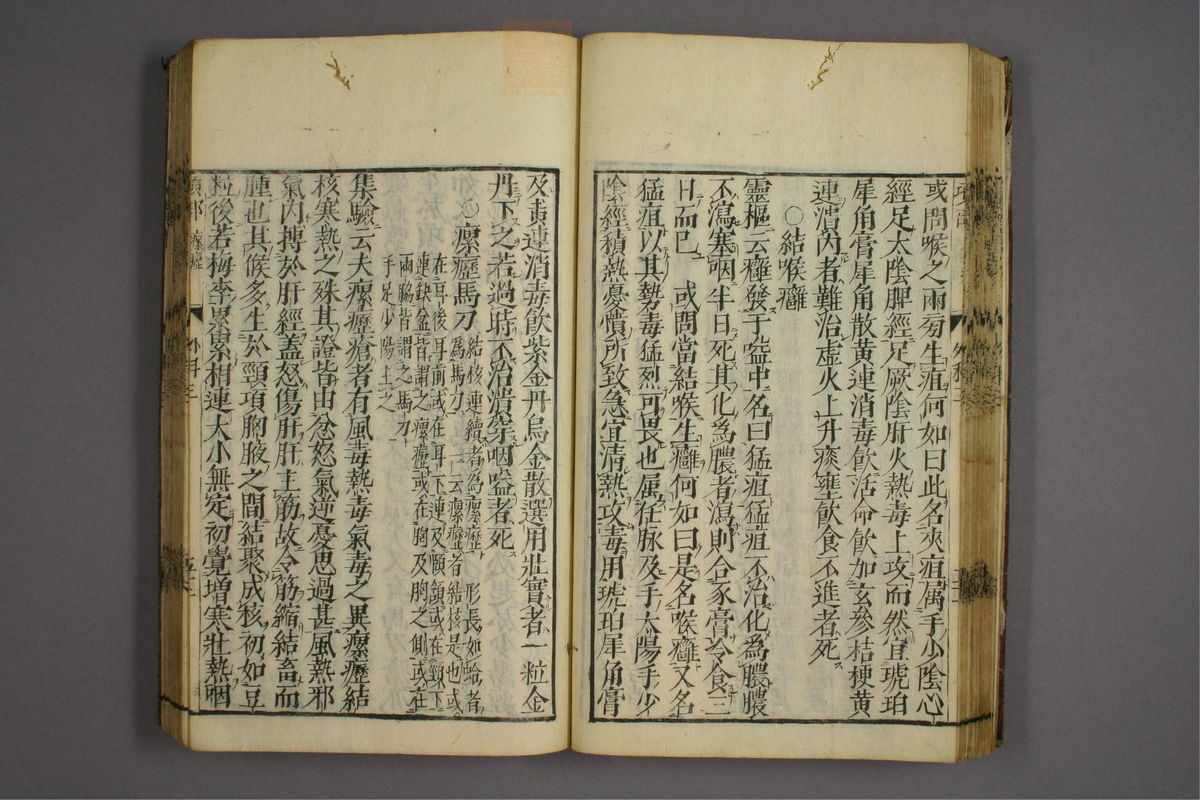 或問喉之兩旁生疽何如曰此名夾疽屬手少陰心
經足太陰脾經足厥陰肝火熱毒上攻而然宜琥珀
犀角膏犀角散黃連消毒飲活命飲加玄參桔梗黃
連潰內者難治虛火上升痰壅飲食不進者死
○結喉癰
靈樞云癰發于嗌中名曰猛疽猛疽不治化為膿膿
不瀉塞咽半日死其化為膿者瀉則合豕膏冷食三
日而已　或問當結喉生癰何如曰是名喉癰又名
猛疽以其勢毒猛烈可畏也屬任脉及手太陽手少
陰經積熱憂憤所致急宜清熱攻毒用琥珀犀角膏
及黃連消毒飲紫金丹烏金散選用壯實者一粒金
丹下之若過時不治潰穿咽嗌者死
○瘰癧馬刀
結核連續者為瘰癧形長如蛤者
為馬刀一云瘰癧者結核是也或
在耳後耳前或在耳下連及頤頷或在頸下
連缺盆皆謂之瘰癧或在胸及胸之側或在
兩脇皆謂之馬刀
手足少陽主之
集驗云夫瘰癧瘡者有風毒熱毒氣毒之異瘰癧結
核寒熱之殊其證皆由忿怒氣逆憂思過甚風熱邪
氣內搏於肝經蓋怒傷肝肝主筋故令筋縮結畜而
腫也其候多生於頸項胸腋之間結聚成核初如豆
粒後若梅李累累相連大小無定初覺增寒壯熱咽
項部　瘰癧
外科三